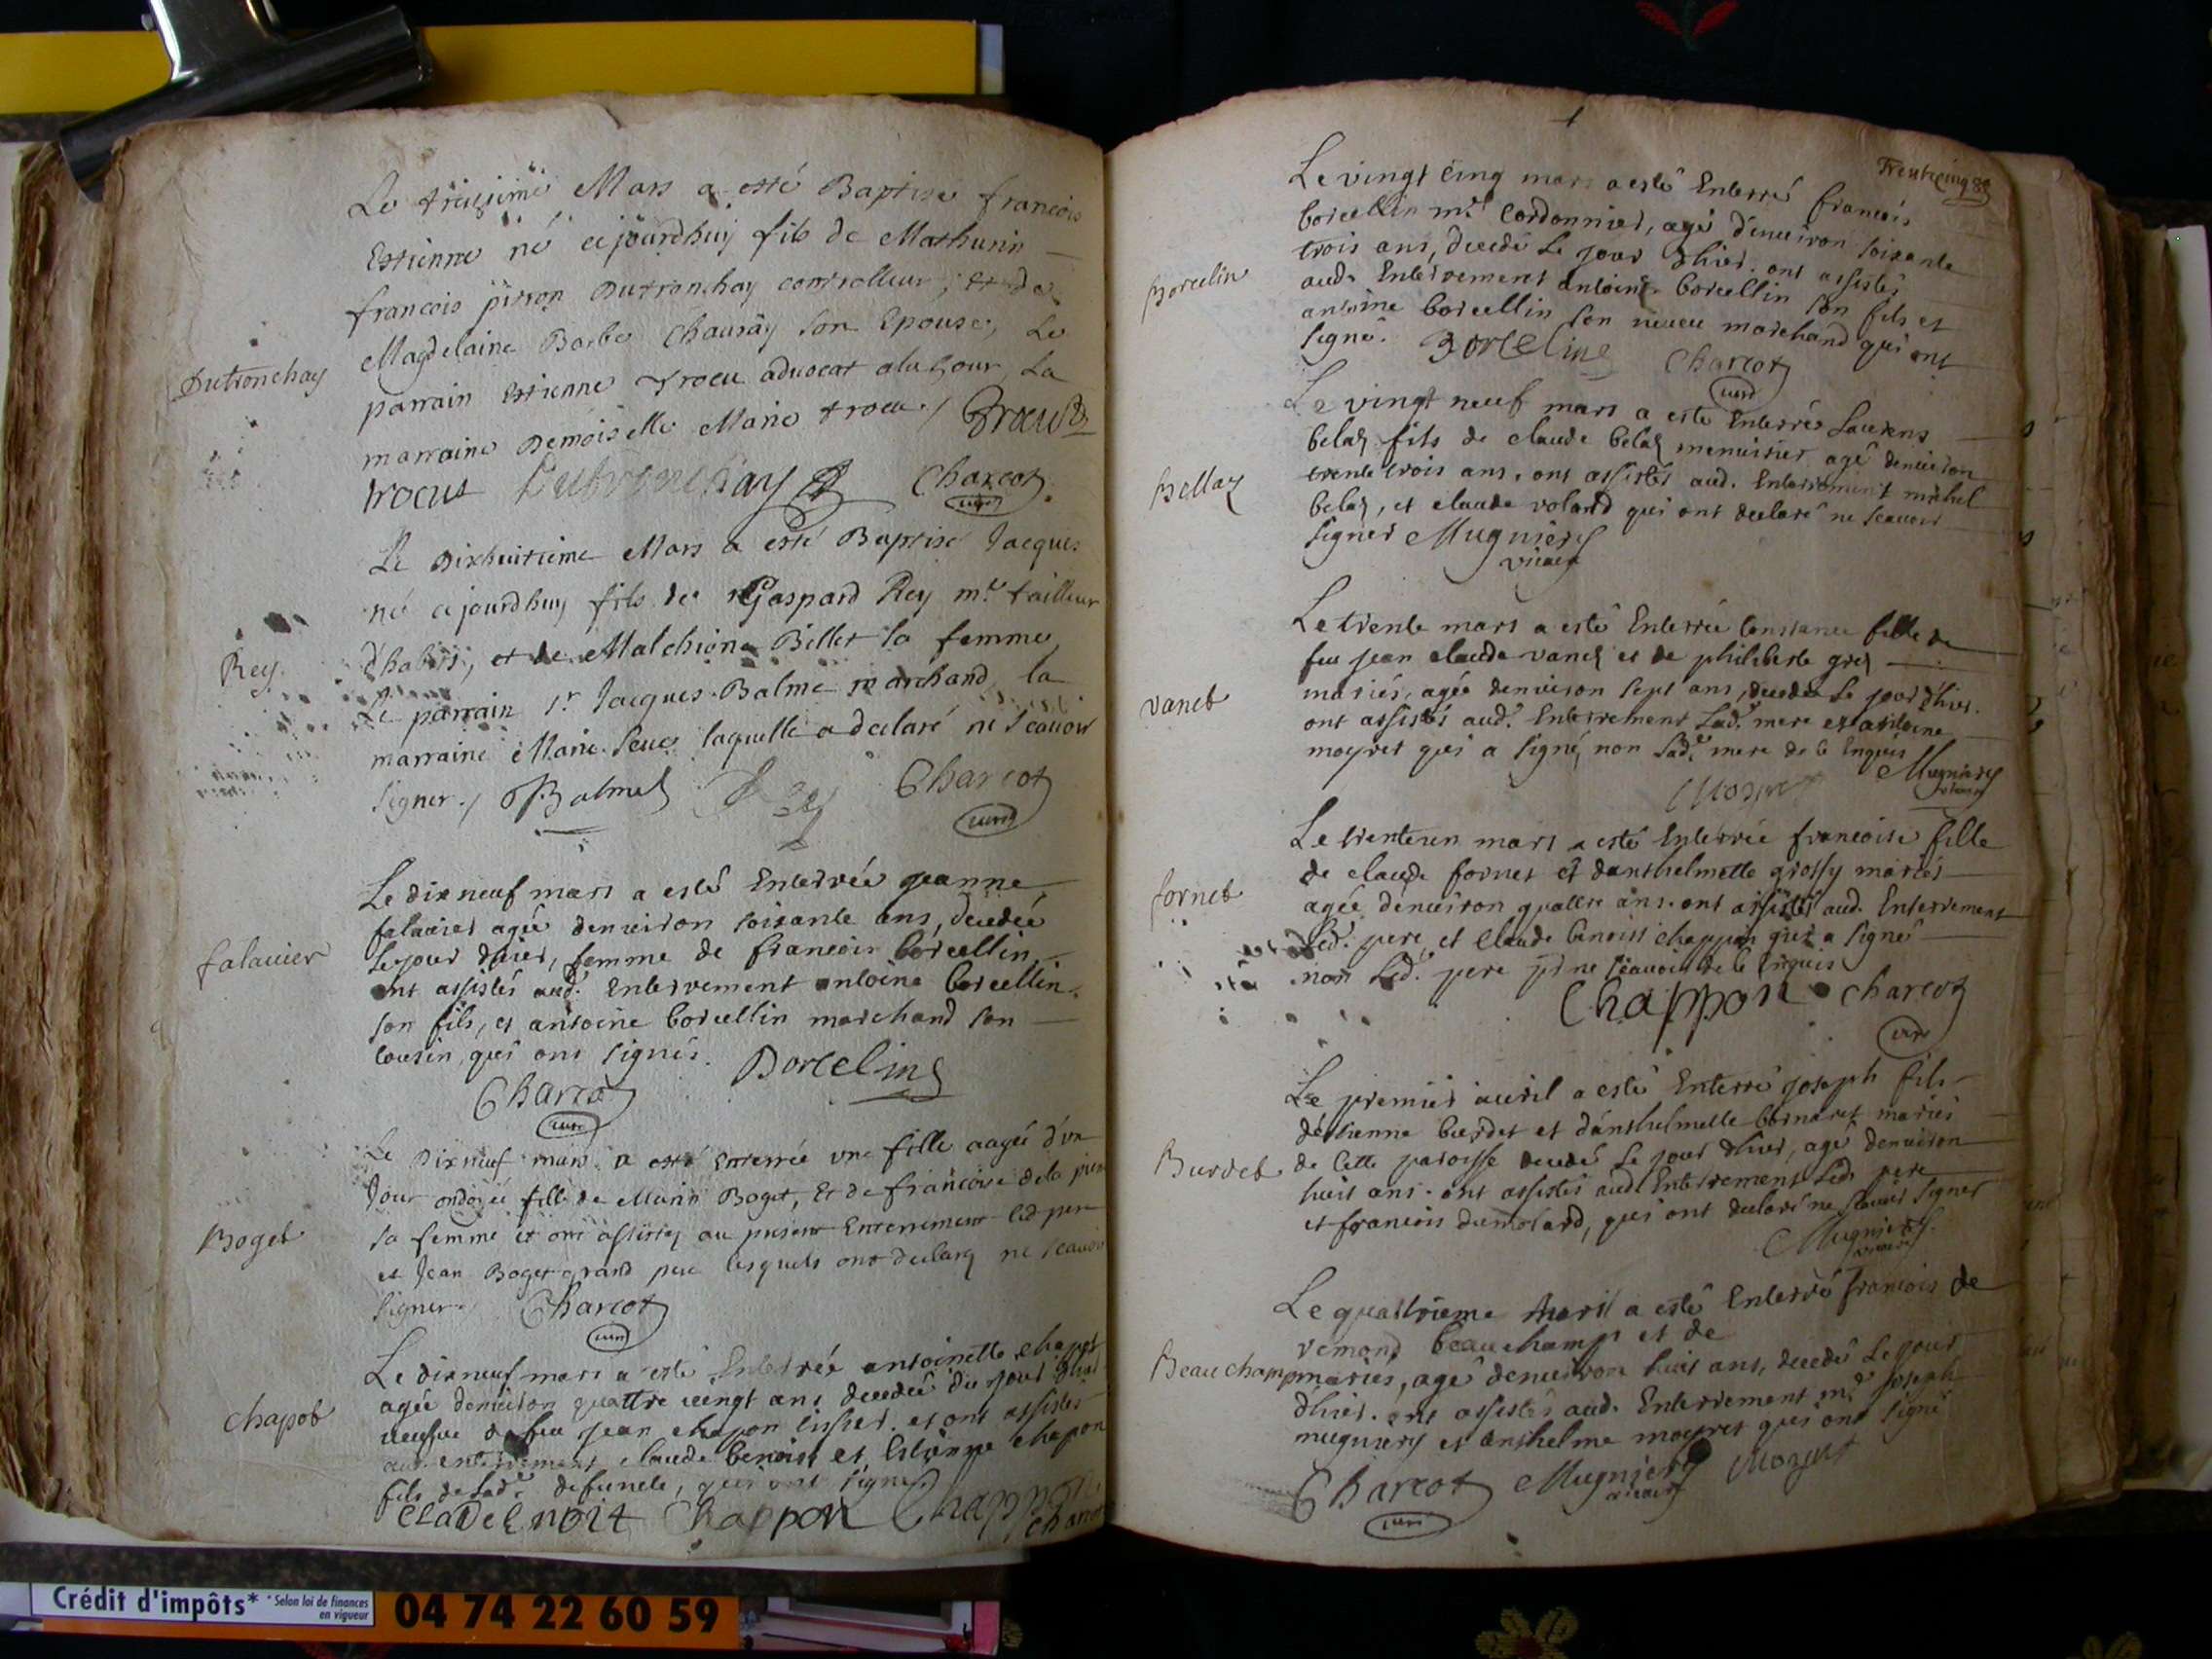 Le treizieme Mars a esté Baptise francois
Estienne né cejourdhuy fils de Mathurin
francois pitron Dutronchay controlleur, et de
Magdelaine Barbe Chausay son Epouse, Le
Dutronchay
parrain Estienne trocu aduocat a la Cour, La
marraine Demoiselle Marie trocu
trocus Dutronchay Charcot
curé
Le Dixhuitieme Mars a esté Baptisé Jacques
né cejourdhuy fils de Gaspard Rey mre tailleur
Rey
d'habits, et de Malchione Billet sa femme
Le parrain sr Jacques Balme marchand, la
marraine Marie laquelle a declaré ne scauoir
signer. Balme Rey Charcot
curé
Le dix neuf mars a esté Enterrée jeanne
falauier agée denuiron soixante ans, decedée
falauier
le jour dhier, femme de francois borcellin
ont assistés aud. Enterrement antoine borcellin
son fils, et antoine borcellin marchand son
cousin, qui ont signés. Borcelin
Charcot
curé
Le Dix neuf mars a esté enterrée une fille aagée d'un
Jour ondoyée fille de Marin Boget, Et de francoise dela
Boget
sa femme et ont assistez au present Enterrement led pere
et Jean Boget grand pere lesquels ont declarez ne scauoir
signer. Charcot
curé
Le dixneuf mars a esté Enterrée antoinette chapot
chapot
agée denuiron quattre uingt ans decedée du jour dhier
ueufue de feu jean chapon et ont assistés
aud. enterrement claude benoist et Estienne chapon
fils de lad. defuncte, qui ont signez
CLaDe bEnoit Chappon Chappon
Charcot
Trente cinq
Le vingt cinq mars a esté Enterré francois
borcellin mre Cordonnier, agé denuiron soixante
trois ans, decedé le jour dhier. ont assistés
Borcelin
aud. Enterrement antoine borcellin son fils et
antoine borcellin son neueu marchand qui ont
signé. Borceline Charcot
curé
Le vingt neuf mars a esté Enterré Laurens
belay fils de claude belay menuisier agé denuiron
Bellay
trente trois ans, ont assistés aud. Enterrement michel
belay, et claude voland qui ont declaré ne scauoir
signer Mugniery
vicaire
Le trente mars a esté Enterrée Constance fille de
feu jean claude vanet et de philiberte grey
Vanet
mariés, agée denuiron sept ans, decedée le jour dhier.
ont assistés aud. Enterrement Lad. mere et antoine
moyret qui a signé, non lad. mere de ce Enquis
Moyret Mugniery
vicaire
Le trenteun mars a esté Enterrée francoise fille
de claude fornet et danthelmette grossy mariés
fornet
agée denuiron quattre ans. ont assistés aud. Enterrement
led. pere, et Claude benoist chappon qui a signé
non led. pere pr ne scauoir de ce Enquis
Chappon Charcot
curé
Le premier auril a esté Enterré joseph fils
destienne burdet et danthelmette bornaret mariés
Burdet
de cette paroisse decedé le jour dhier, agé denuiron
huit ans. ont assistés aud. Enterrement Led. pere
et francois dumolard, qui ont declaré ne scauoir signer
Mugniery
vicaire
Le quattrieme Auril a esté Enterré francois de
vemond beauchamp et de
Beauchamp
mariés, agé denuiron huit ans, decedé Le jour
dhier. ont assistés aud. Enterrement mre joseph
mugniery et anthelme moyret qui ont signé
Charcot Mugniery Moyret
curé vicaire
Crédit d'impôts* *Selon loi de finances
en vigueur
04 74 22 60 59